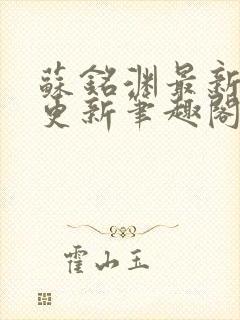 蘇銘淵最新
更新筆趣閣
霍山玉